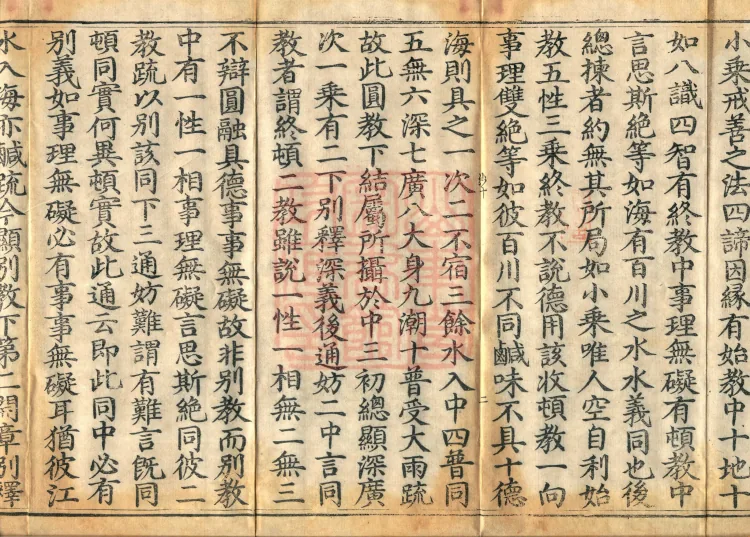 小乘戒善之法四諦因緣有始教中十地十
如八識四智有終教中事理無礙有頓教中
言思斯絶等如海有百川之水水義同也後
總揀者約無其所局如小乘唯人空自利始
教五性三乘終教不說德用該收頓教一向
事理雙絶等如彼百川不同鹹味不具十德
海則具之一次二不宿三餘水入中四普同
五無六深七廣八大身九潮十普受大雨疏
故此圓教下結屬所攝於中三初總顯深廣
次一乘有二下別釋深義後通妨二中言同
教者謂終頓二教雖說一性一相無二無三
不辯圓融具德事事無礙故非別教而別教
中有一性一相事理無礙言思斯絶同彼二
教疏以別該同下三通妨難謂有難言旣同
頓同實何異頓實故此通云即此同中必有
別義如事理無礙必有事事無礙耳猶彼江
水入海亦鹹疏今顯別教下第二開章別釋